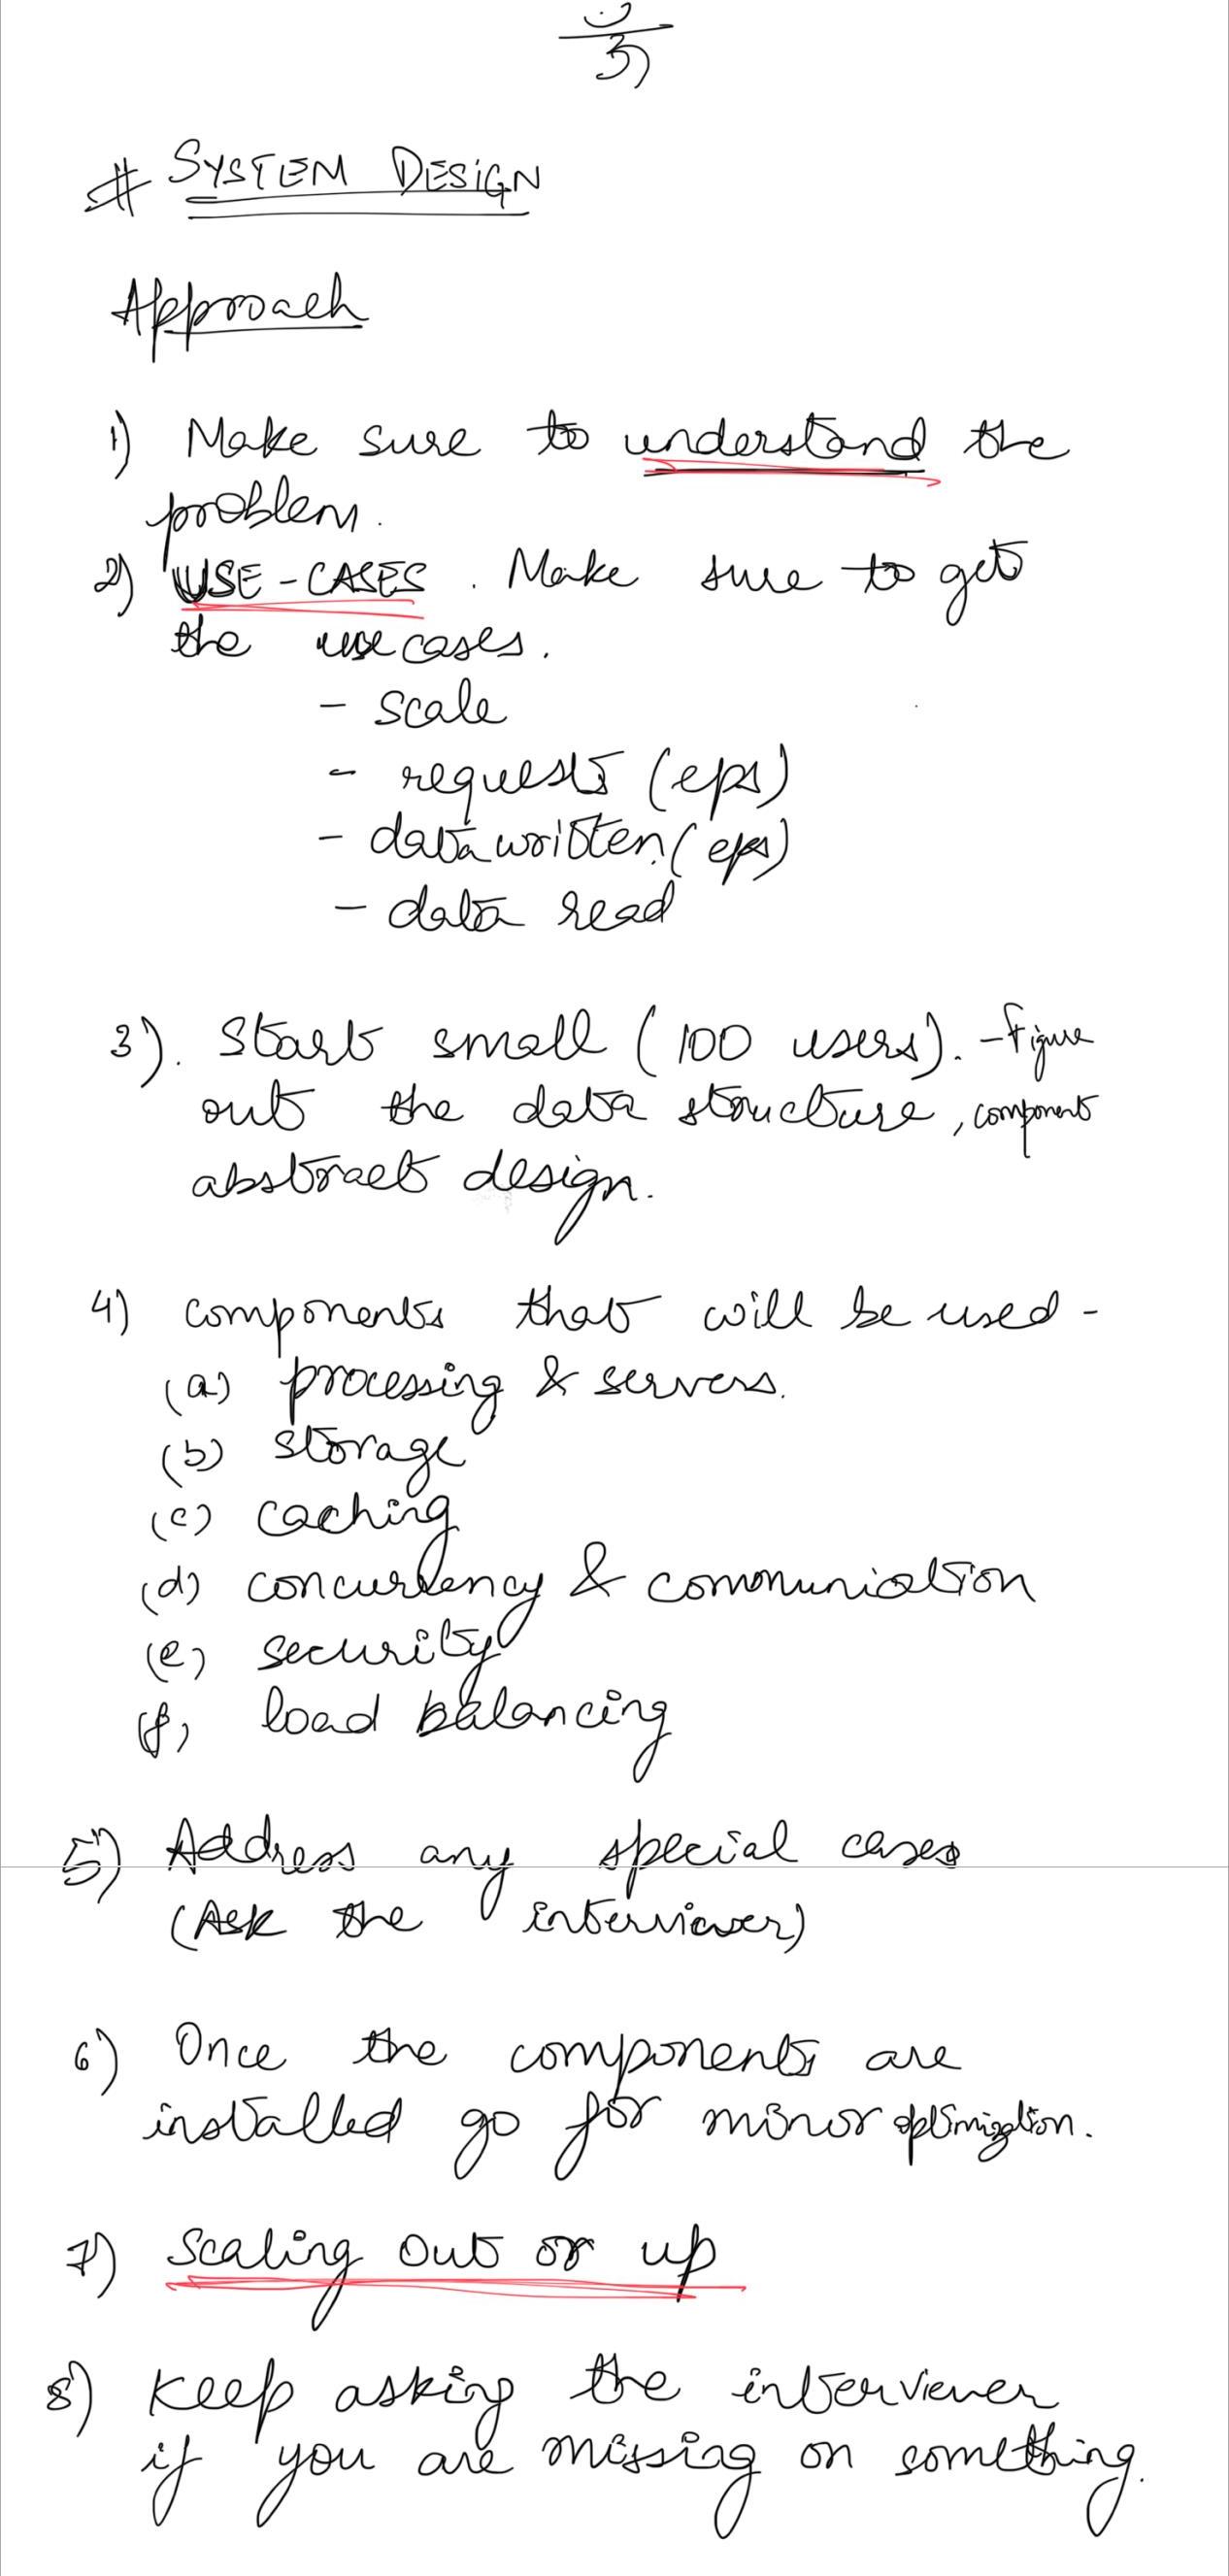 # SYSTEM DESIGN
Approach
1) Make sure to understand the
problem.
2) USE-CASES. Make sure to get
the use cases.
- scale
- requests (eps)
- data written (eps)
- data read
3). Start small (100 users). - figure
out the data structure, component
abstract design.
4) components that will be used -
(a) processing & servers.
(b) storage
(c) caching
(d) concurrency & communiation
(e) security
(f) load balancing
5) Address any special cases
(Ask the interviewer)
6) Once the components are
installed go for minor optimization.
7) Scaling out or up
8) Keep asking the interviewer
if you are missing on something.